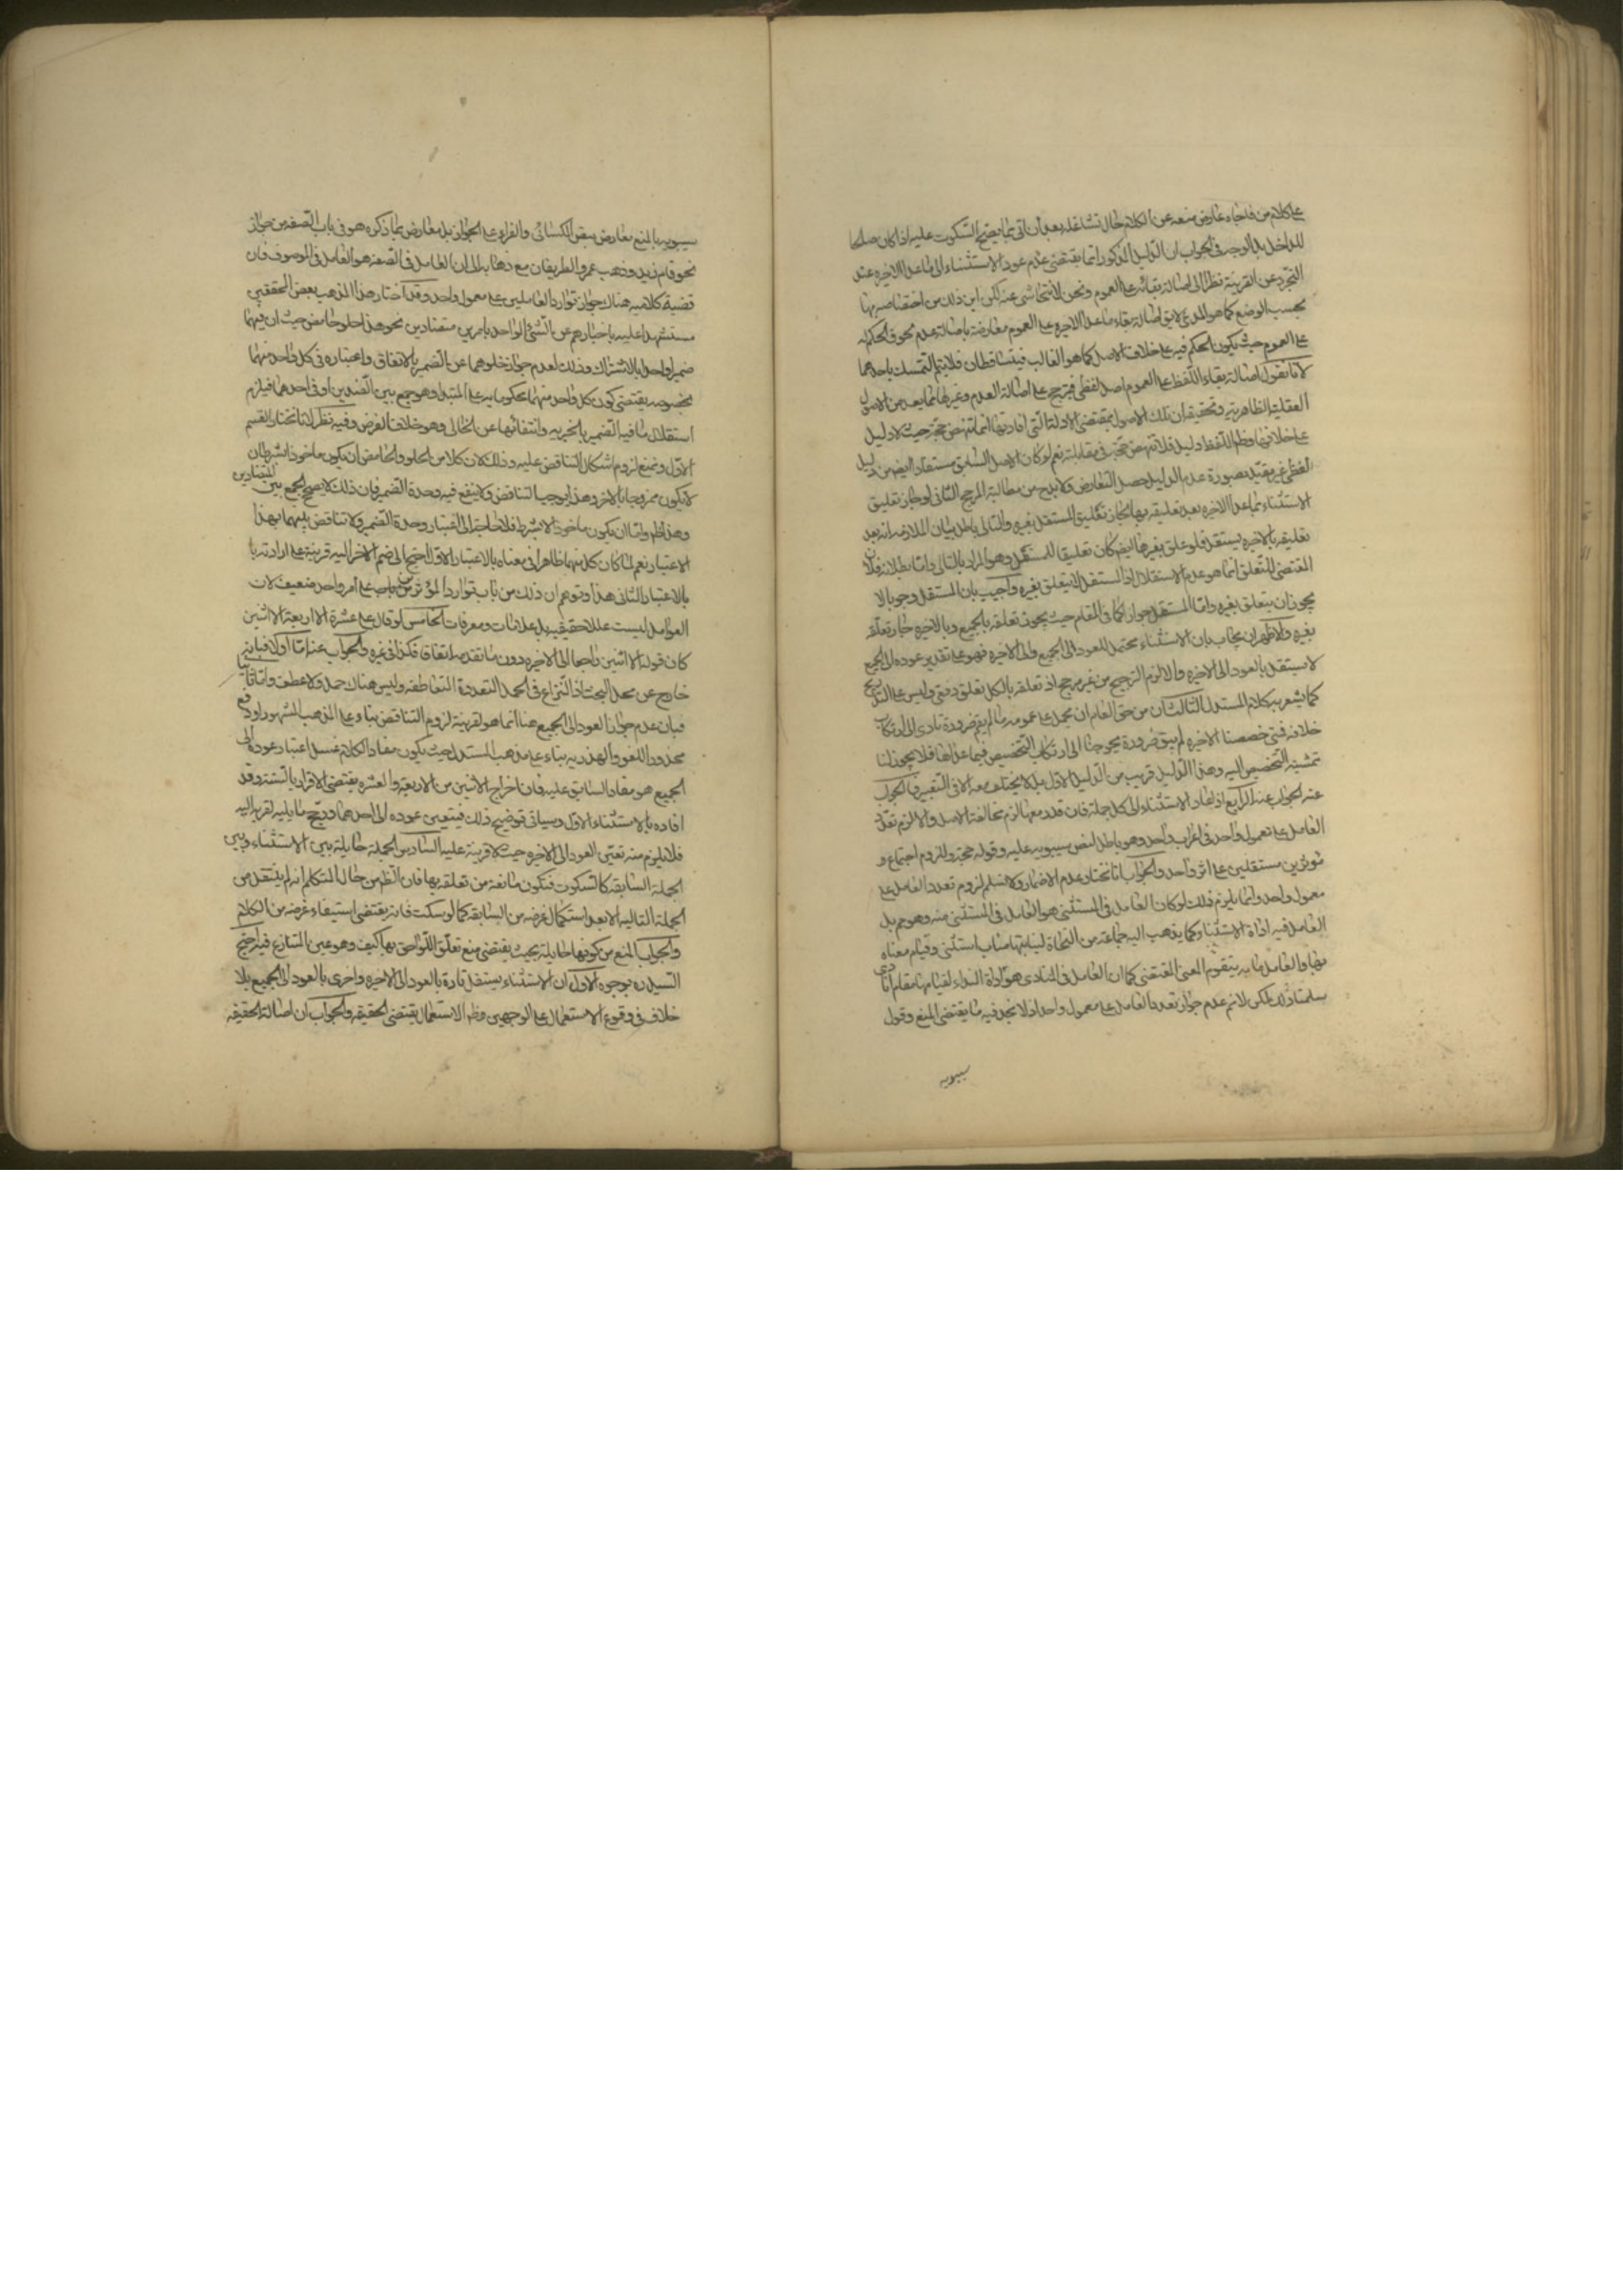 على كلام من فاجاه عارض منعه عن الكلام حال تشاغله بعد أن اتى بما يصح السكوت عليه اذا كان صالحا
للداخل بل الوجه فى الجواب ان الدليل المذكور انما يقتضى عدم عود الاستثناء الى ما عدا الاخيره عند
التجرد عن القرينة نظرا الى اصالة بقائه على العموم ونحن لا نتحاشى عنه لكن اين ذلك من اختصاصه بها
بحسب الوضع كما هو المدعى لايق اصالة بقاء ما عدا الاخيره على العموم معارضة باصالة عدم الحكم
على العموم حيث يكون الحكم فيه على خلاف الاصل كما هو الغالب فيتساقطان فلا يتم التمسك باحدهما
لانا نقول اصالة بقاء اللفظ على العموم اصل لفظى فيترجح على اصالة العدم وغيرها مما يعد من الاصول
العقلية الظاهرية وتحقيقه ان تلك الاصول بمقتضى الادلة التى افادتها انما تنهض حجة حيث لا دليل
على خلافها وظم اللفظ دليل فلا تنهض حجة فى مقابلته نعم لو كان الاصل السابق مستفاد ايضم من دليل
لفظى غير مقيد بصورة عدم الدليل حصل التعارض ولا بدح من مطالبة المرجح الثانى لو جاز تعليق
الاستثناء بما عدا الاخيره بعد تعليقه بها لكان تعليق المستقل بغيره والتالى باطل بيان الملازمه انه بعد
تعليقه بالاخيره يستقل فلو علق بغيرها ايضم كان تعليقا للمستقل وهو المراد بالتالى واما بطلانه فلان
المقتضى للتعلق انما هو عدم الاستقلال اذ المستقل لا يتعلق بغيره واجيب بان المستقل وجوبا لا
يجوز ان يتعلق بغيره واما المستقل جوازا كما فى المقام حيث يجوز تعلقه بالجميع وبالاخيره جاز تعلقه
بغيره والاظهر ان يجاب بان الاستثناء محتمل للعود الى الجميع والى الاخيره فهو على تقدير عوده الى الجميع
لا يستقل بالعود الى الاخيره والا لزم الترجيح من غير مرجح اذ تعلقه بالكل تعلق دفعى وليس على التدريج
كما يشعر به كلام المستدل الثالث ان من حق العام ان يحمل على عمومه ما لم يقم ضرورة تادى الى ارتكاب
خلافه فمتى خصصنا الاخيره لم يبق ضرورة يحوجنا الى ارتكاب التخصيص فيما عداها فلا يجوز لنا
تمشية التخصيص اليه وهذا الدليل قريب من الدليل الاول بل لا يختلف معه الا فى التعبير فالجواب
عنه الجواب عنه الرابع اذا عاد الاستثناء الى كل جملة فان قدر معها لزم مخالفة الاصل والا لزم تعدد
العامل على معمول واحد فى اعراب واحد وهو باطل لنص سيبويه عليه وقوله حجة وللزوم اجتماع
مؤثرين مستقلين على اثر واحد والجواب انا نختار عدم الاضمار ولا نسلم لزوم تعدد العامل على
معمول واحد وانما يلزم ذلك لو كان العامل فى المستثنى هو العامل فى المستثنى منه وهو مم بل
العامل فيه اداة الاستثناء كما يذهب اليه جماعة من النحاة لنيابتها مناب استثنى وقيام معناه
بها والعامل ما به يتقوم المعنى المقتضى كما ان العامل فى المنادى هو اداة النداء لقيامها مقام انادى
سلمنا ذلك لكن لا نم عدم جواز تعدد العامل على معمول واحد اذ لا نجد فيه ما يقتضى المنع وقول
سيبويه
سيبويه بالمنع معارض بنص الكسائى والفراء على الجواز بل معارض بما ذكره هو فى باب الصفه من جواز
نحو قام زيد وذهب عمرو الظريفان مع ذهابه الى ان العامل فى الصفه هو العامل فى الموصوف فان
قضية كلاميه هناك جواز توارد العاملين على معمول واحد وقد اختار هذا المذهب بعض المحققين
مستشهدا عليه باخبارهم عن الشئ الواحد بامرين متضادين نحو هذا حلو حامض حيث ان فيهما
ضميرا واحدا بالاشتراك وذلك لعدم جواز خلوهما عن الضمير بالاتفاق واعتباره فى كل واحد منهما
بخصوصه يقتضى كون كل واحد منهما محكوما به على المبتدا وهو جمع بين الضدين او فى احدهما فيلزم
استقلال ما فيه الضمير بالخبريه وانتفائها عن الخالى وهو خلاف الفرض وفيه نظر لانا نختار القسم
الاول ونمنع لزوم اشكال التناقض عليه وذلك لان كلا من الحلو والحامض ان يكون ماخوذا بشرط ان
لا يكون ممزوجا بالاخر وهذا يوجب التناقض ولا ينفع فيه وحدة الضمير فان ذلك لا يصحح الجمع بين المتضادين
وهذا ظم واما ان يكون ماخوذا لا بشرط فلا حاجة الى اعتبار وحدة الضمير ولا تناقض بينهما بهذا
الاعتبار نعم لما كان كل منهما ظاهرا فى معناه بالاعتبار الاول احتج الى ضم الاخر اليه قرينة على ارادته
بالاعتبار الثانى هذا وتوهم ان ذلك من باب توارد المؤثرين على امر واحد ضعيف لان
العوامل ليست عللا حقيقيه بل علامات ومعرفات الخامس لو قال على عشرة الا اربعة الا اثنين
كان قوله الا اثنين راجعا الى الاخيره دون ما تقدمها اتفاقا فكذا فى غيره والجواب عنه اما اولا فبانه
خارج عن محل البحث اذ النزاع فى الجمل المتعددة المتعاطفه وليس هناك جمل ولا عطف واما ثانيا
فبان عدم جواز العود الى الجميع هنا انما هو لقرينة لزوم التناقض بناء على المذهب المشهور او دفع
محذور اللغو والهذريه بناء على مذهب المستدل حيث يكون مفاد الكلام باعتبار عوده الى
الجميع هو مفاد السابق عليه فان اخراج الاثنين من الاربعة والعشره يقتضى الاقرار بالستة وقد
افاده بالاستثناء الاول وسياتى توضيح ذلك فيتعين عوده الى احدهما ورجح ما يليه لقربه اليه
فلا يلزم منه تعين العود الى الاخيره حيث لا قرينة عليه السادس الجملة حايلة بين الاستثناء وبين
الجملة السابقه كالسكوت فتكون مانعة من تعلقه بها فان الظم من حال المتكلم انه لم ينتقل من
الجملة التاليه الا بعد استكمال غرضه من السابقه كما لو سكت فانه يقتضى استيفاء غرضه من الكلام
والجواب المنع من كونها حايلة بحيث يقتضى منع تعلق اللواحق بها كيف وهو عين المتنازع فيه احتج
السيد ره بوجوه الاول ان الاستثناء يستعمل تارة بالعود الى الاخيره واخرى بالعود الى الجميع بلا
خلاف فى وقوع الاستعمال على الوجهين وظم الاستعمال يقتضى الحقيقه والجواب ان اصالة الحقيقه